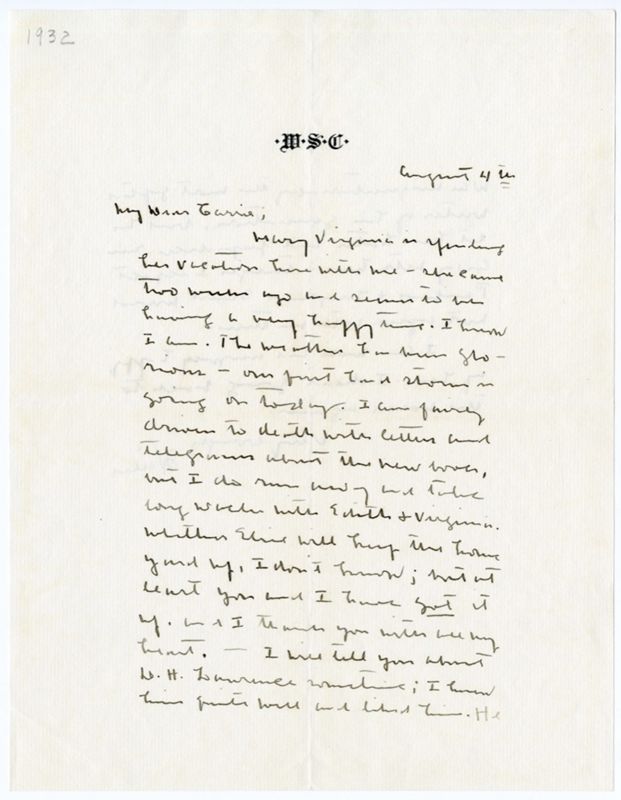 1932
·W·S·C·
August 4th
My Dear Carrie;
Mary Virginia is spending
her vacation here with me – she came
two weeks ago and seems to be
having a very happy time. I know
I am. The weather has been glo-
rious – our first bad storm is
going on today. I am fairly
driven to death with letters and
telegrams about the new book,
but I do run away and take
long walks with Edith & Virginia.
Whether Elsie will keep the home
yard up, I don't know; but at
least you and I have got it
up. And I thank you with all my
heart. — I will tell you about
D. H. Lawrence sometime; I knew
him quite well and liked him. He